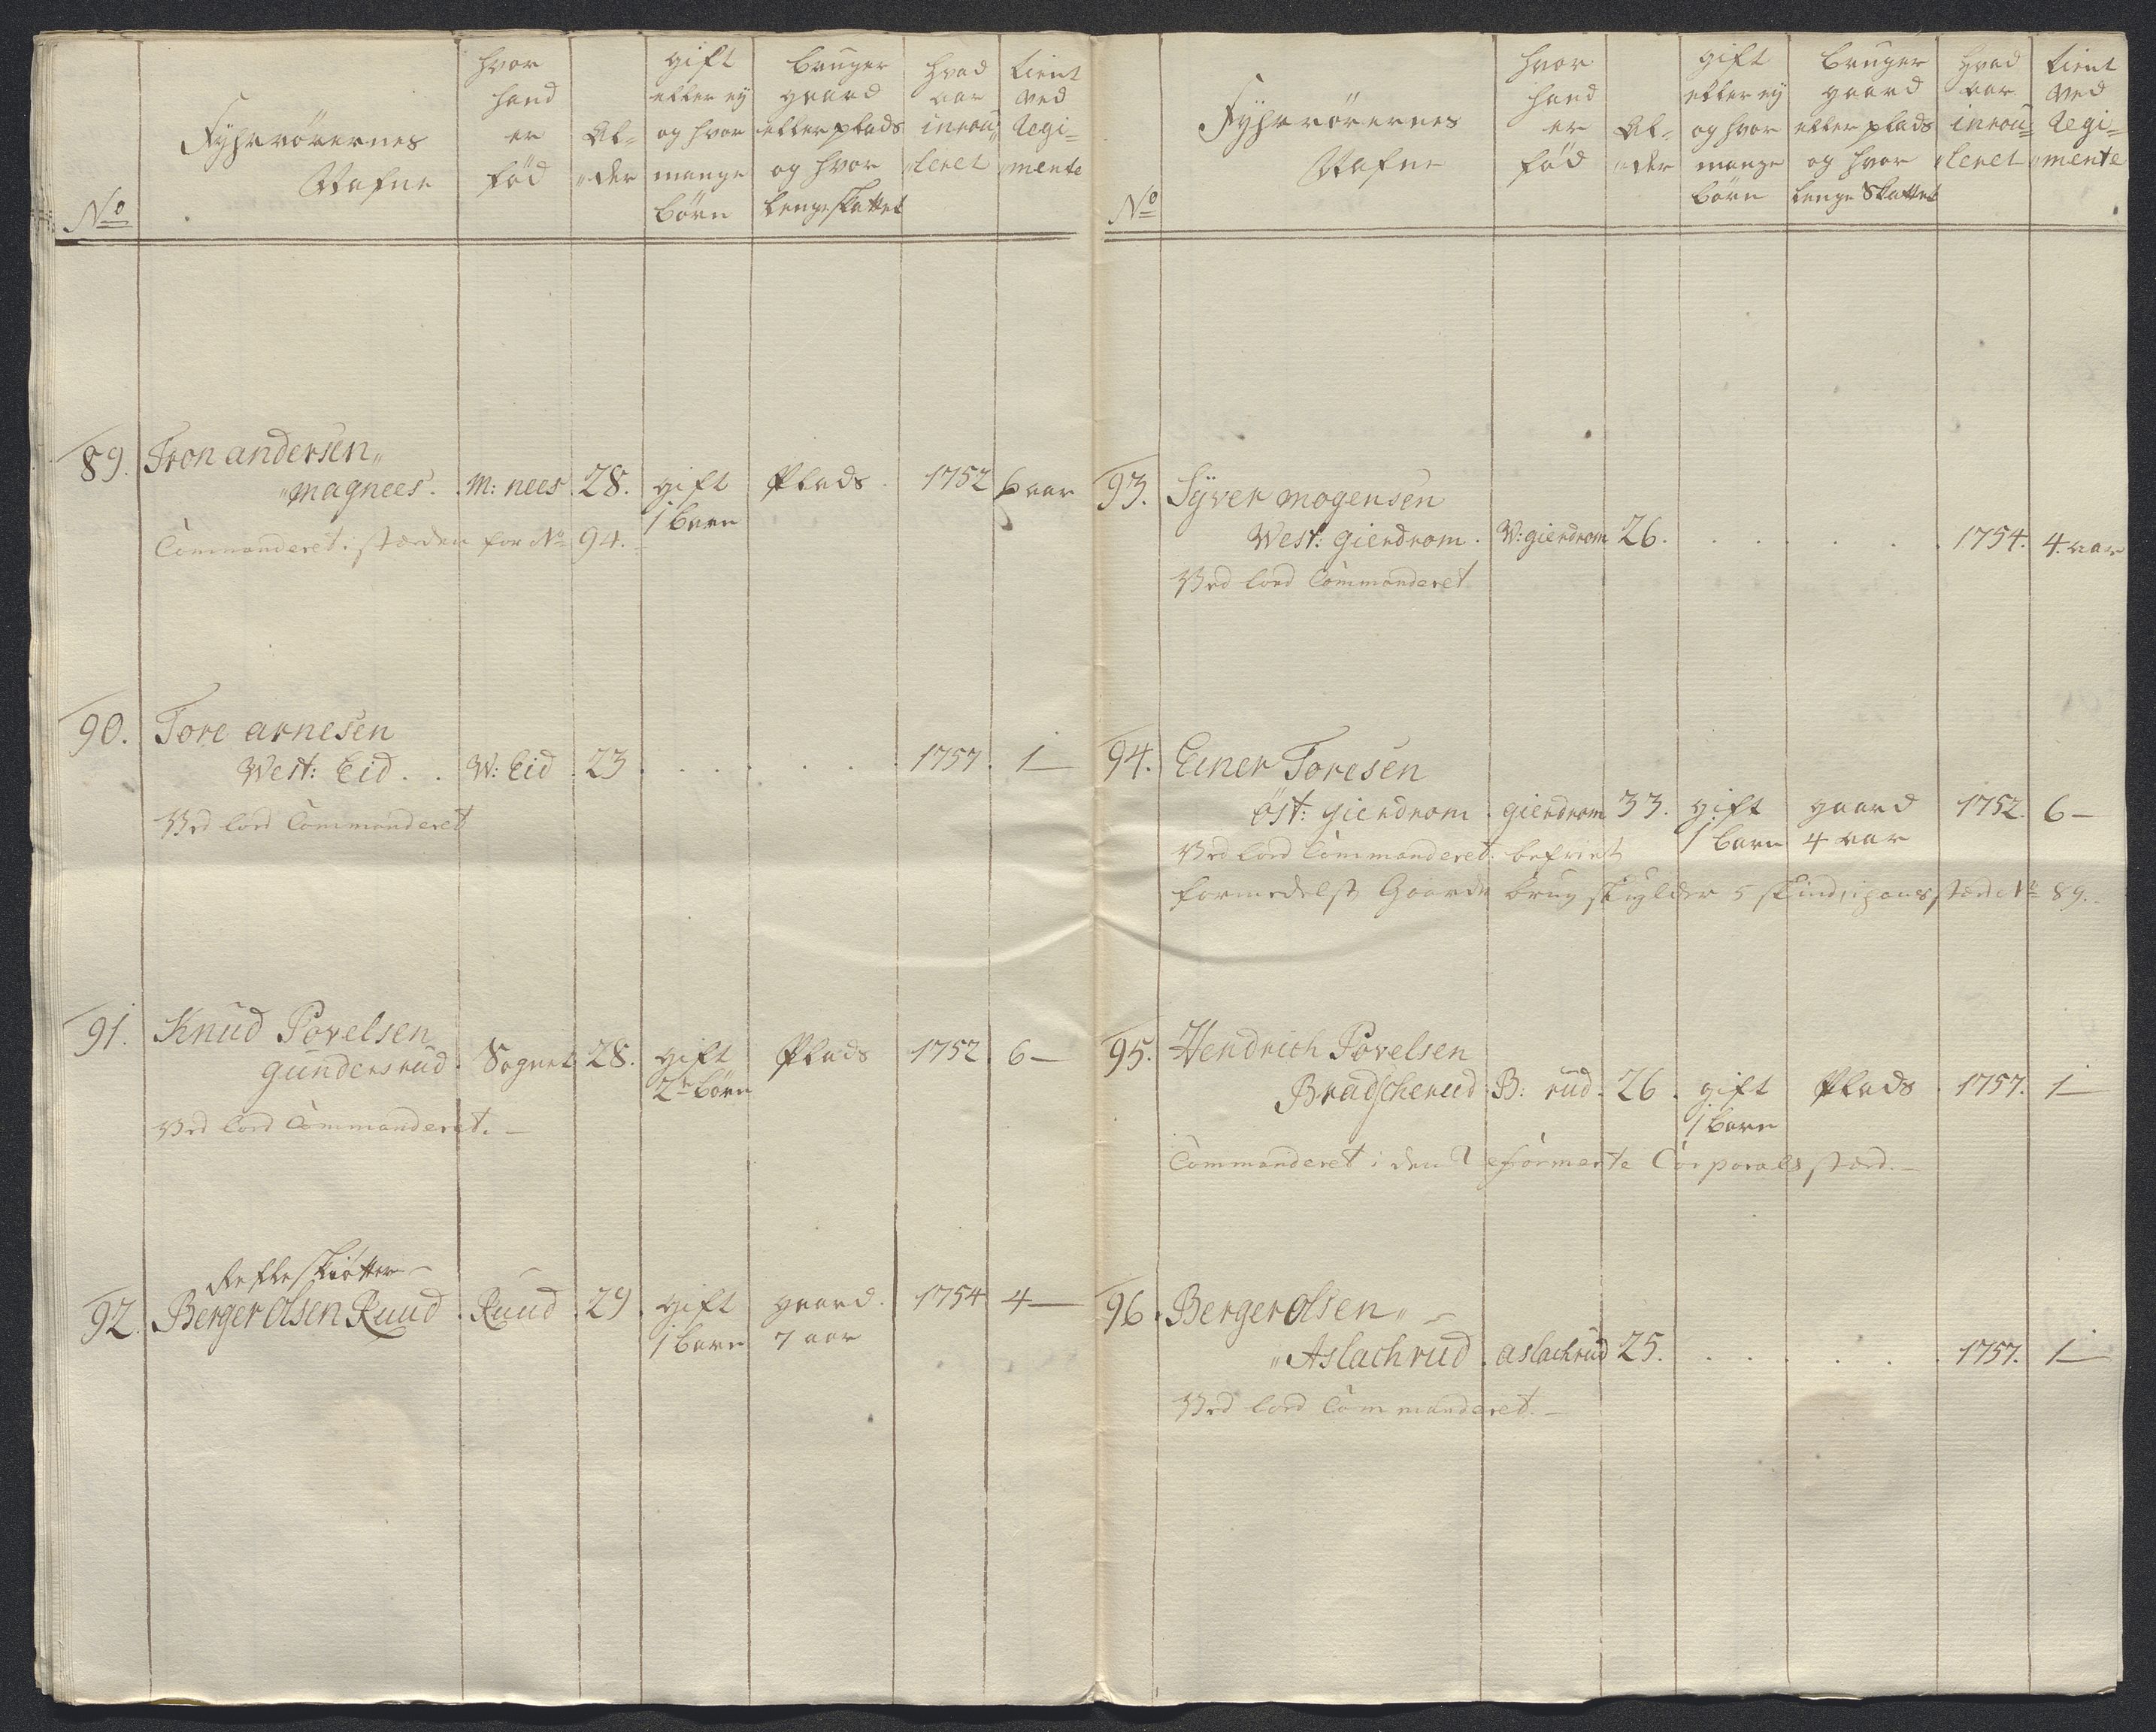 No
Fyhrrörernes Nafne
hvor hand er fød
Al- der
gift eller ey og hvor mange börn
bruger gaard eller plads og hvor lenge skattet
hvad aar inrou- leret
tient ved Regi- mente
89. Tron andersen
magnees. M: nees 28. gift Plads. 1752 6 aar
1 barn
Commanderet i stæden for No 94.
90. Tore arnesen
West: Eid. . W: Eid 23 . . . . . 1757. 1—
Ved lord Commanderet
91. Knud Povelsen
gundersrud. Sognet 28. gift Plads 1752. 6—
2 börn
Ved lord Commanderet. —
Refleskiötter
92. Berger Olsen Ruud. Ruud 29. gift gaard. 1754 4—
1 barn 7 aar
No
Fyhrrörernes Nafne
hvor hand er fød
Al- der
gift eller ey og hvor mange börn
bruger gaard eller plads og hvor lenge Skattet
hvad aar inrou- leret
tient ved Regi- mente
93. Syver mogensen
West: gierdrom. W: gierdrom 26. . . . . . 1754. 4. aar
Ved lord Commanderet
94. Einer Toresen
öst: gierdrom. gierdrom 33. gift gaard 1752. 6—
1 barn 4 aar
Ved lord Commanderet. befriet
formedelst Gaards brug skylder 5 skind, i hans stæd No 89.
95. Hendrich Povelsen
Bradscherud. B: rud. 26. gift Plads. 1757. 1—
1 barn
Commanderet i den Reformerte Corporals stæd. —
96. Berger Olsen
Aslachrud. aslachrud 25. . . . . . 1757. 1—
Ved lord Commanderet. —